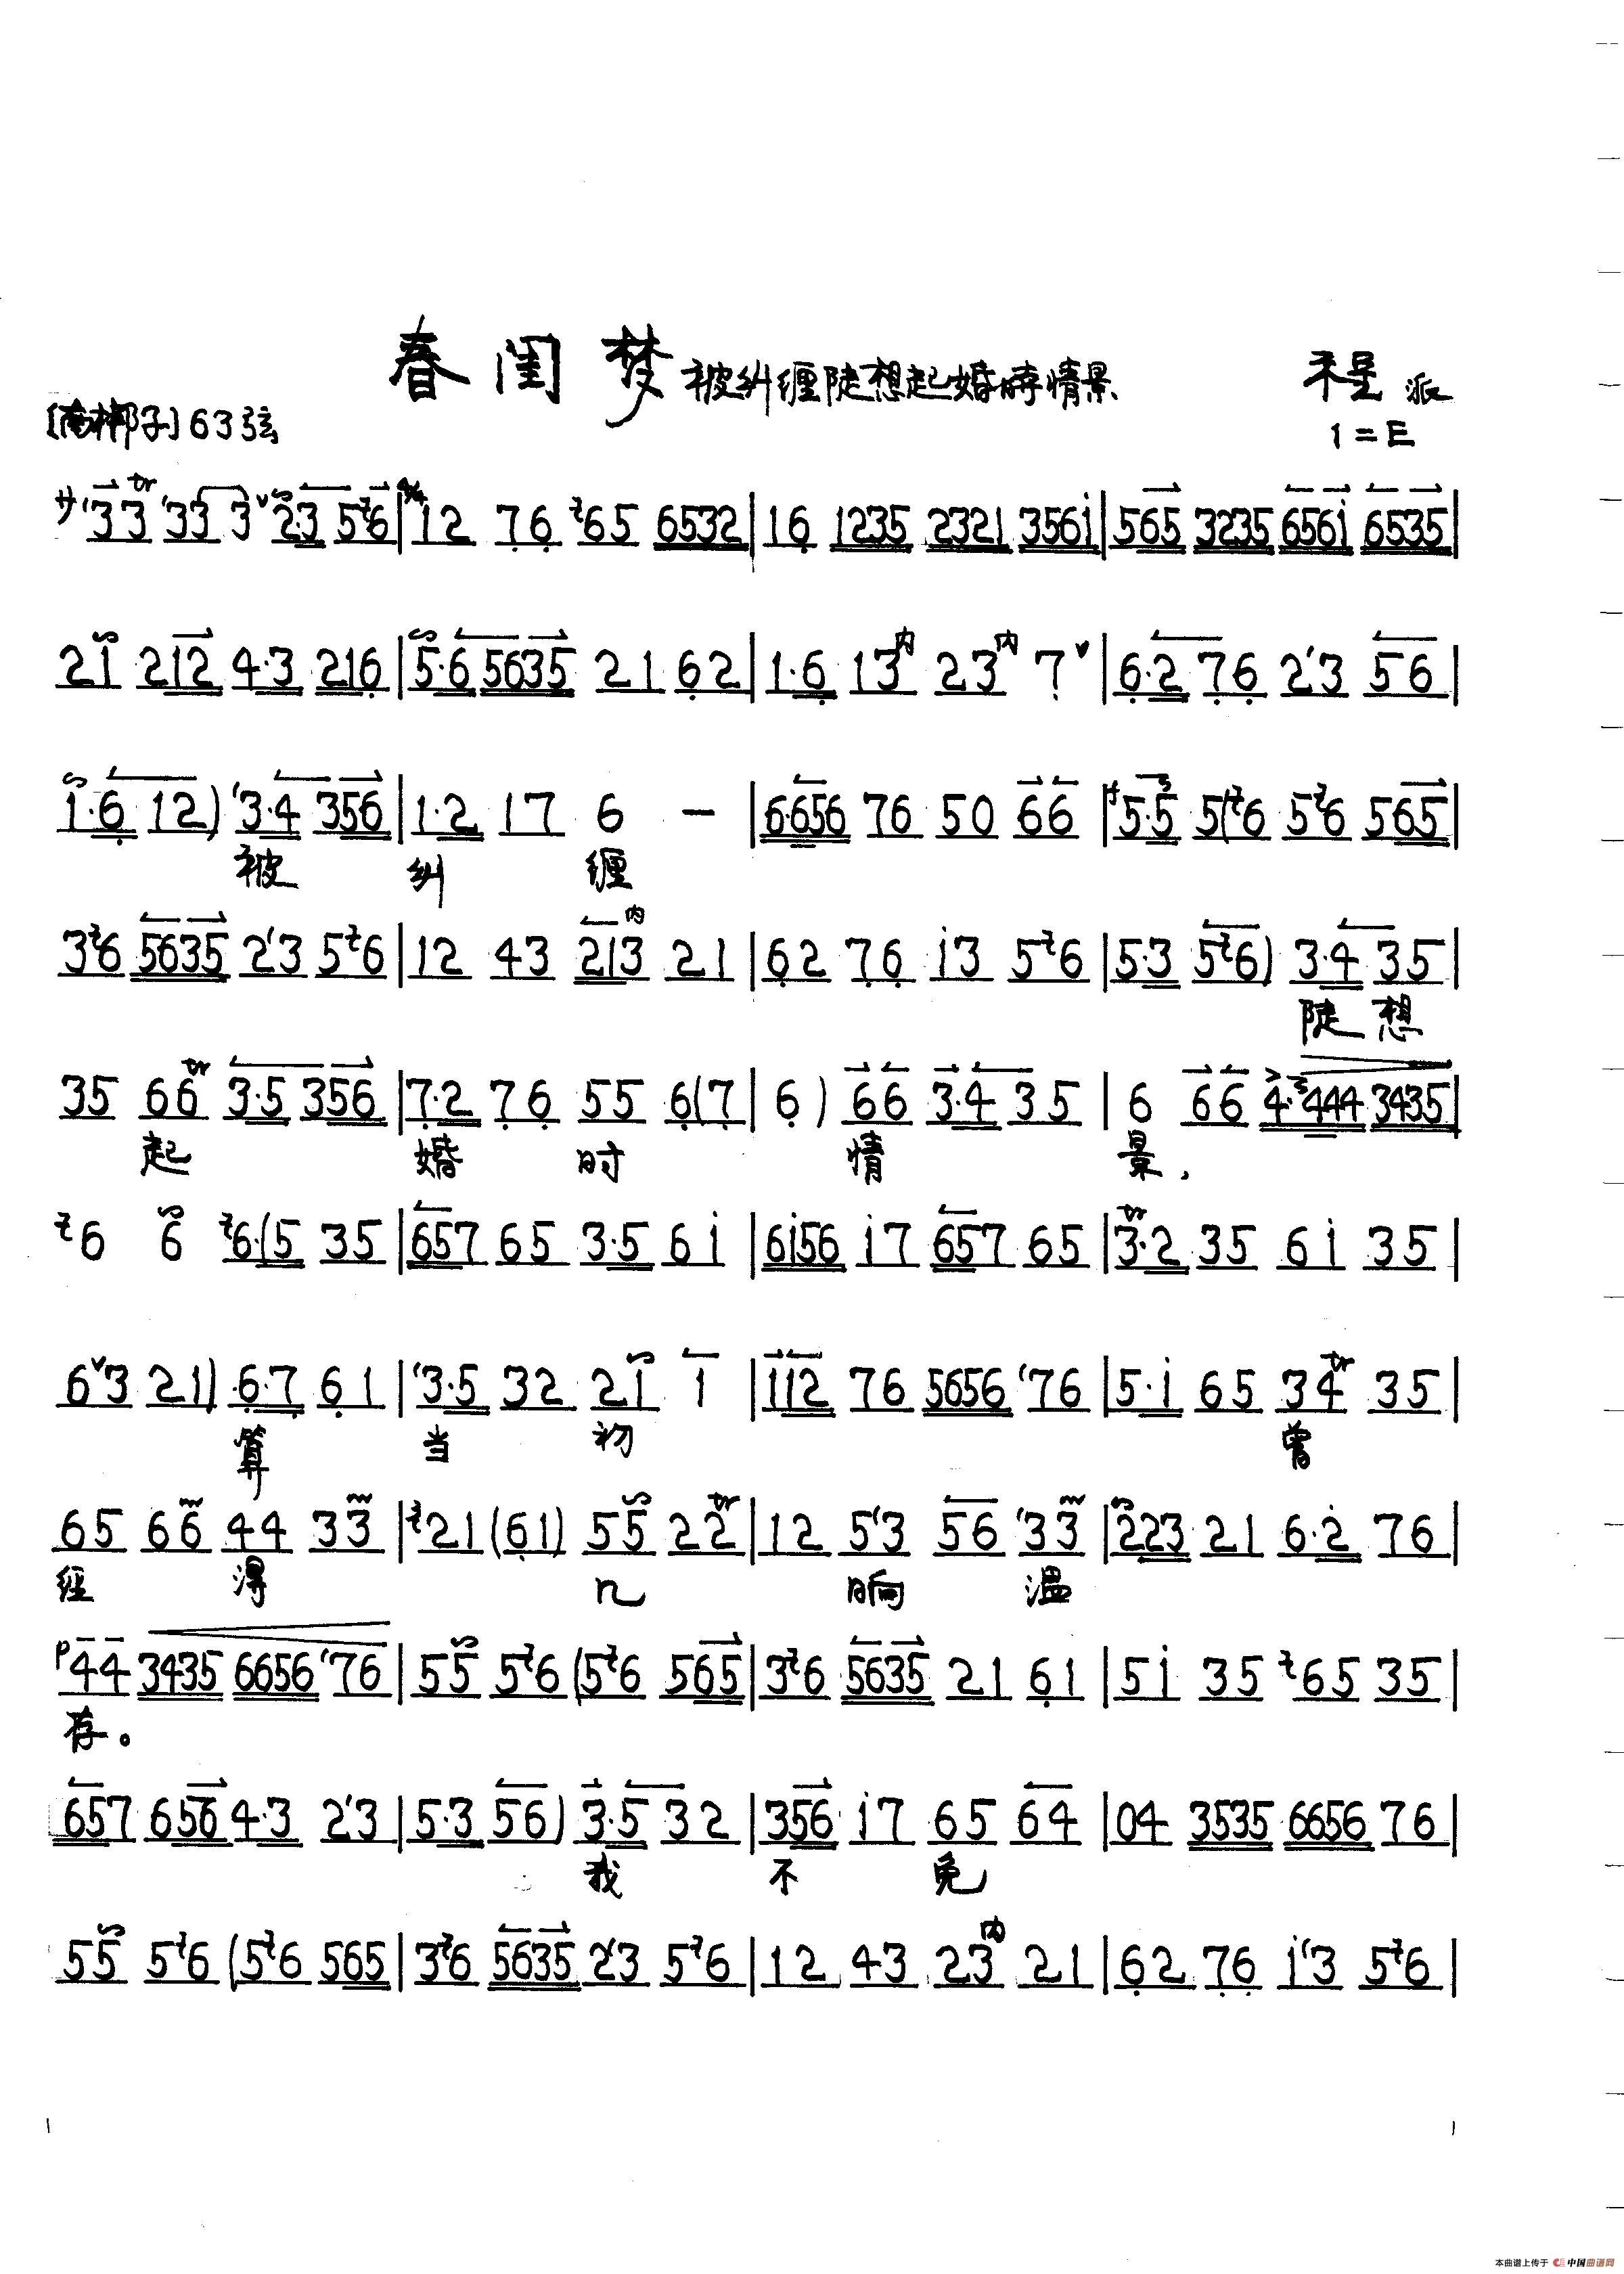 春闺梦 被纠缠陡想起婚时情景 程派
〔南梆子〕63弦 1=E
サ 33 33 3 2·3 56 | 4/4 12 76 65 6532 | 16 1235 2321 3561 | 565 3235 6561 6535 |
21 212 4·3 216 | 5·6 5635 21 62 | 1·6 13内 23内 7 | 6·2 76 23 56 |
1·6 12) 3·4 356 | 1·2 17 6 — | 6·656 76 50 66 | 5·5 5(6 56 565
被 纠 缠
36 5635 23 56 | 12 43 213内 21 | 62 76 i3 56 | 5·3 56) 3·4 35 |
陡 想
35 66tr 3·5 356 | 7·2 76 55 6(7 | 6) 66 3·4 35 | 6 66 4·444 3435 |
起 婚 时 情 景,
6 6 6·(5 35 | 657 65 3·5 6i | 6i56 i7 657 65 | 3·2tr 35 6i 35 |
63 21) 6·7 61 | 3·5 32 21 1 | 112 76 5656 76 | 5·i 65 34tr 35 |
算 当 初 曾
65 66 44 33 | 21 (61) 55 22tr | 12 53 56 33 | 223 21 6·2 76 |
经 得 几 晌 温
p 44 3435 6656 76 | 55 56 (56 565 | 36 5635 21 61 | 5i 35 65 35 |
存。
657 656 4·3 23 | 5·3 56) 3·5 32 | 356 i7 65 64 | 04 3535 6656 76 |
我 不 免
55 56 (56 565 | 36 5635 23 56 | 12 43 23内 21 | 62 76 i3 56 |
本曲谱上传于 中国曲谱网